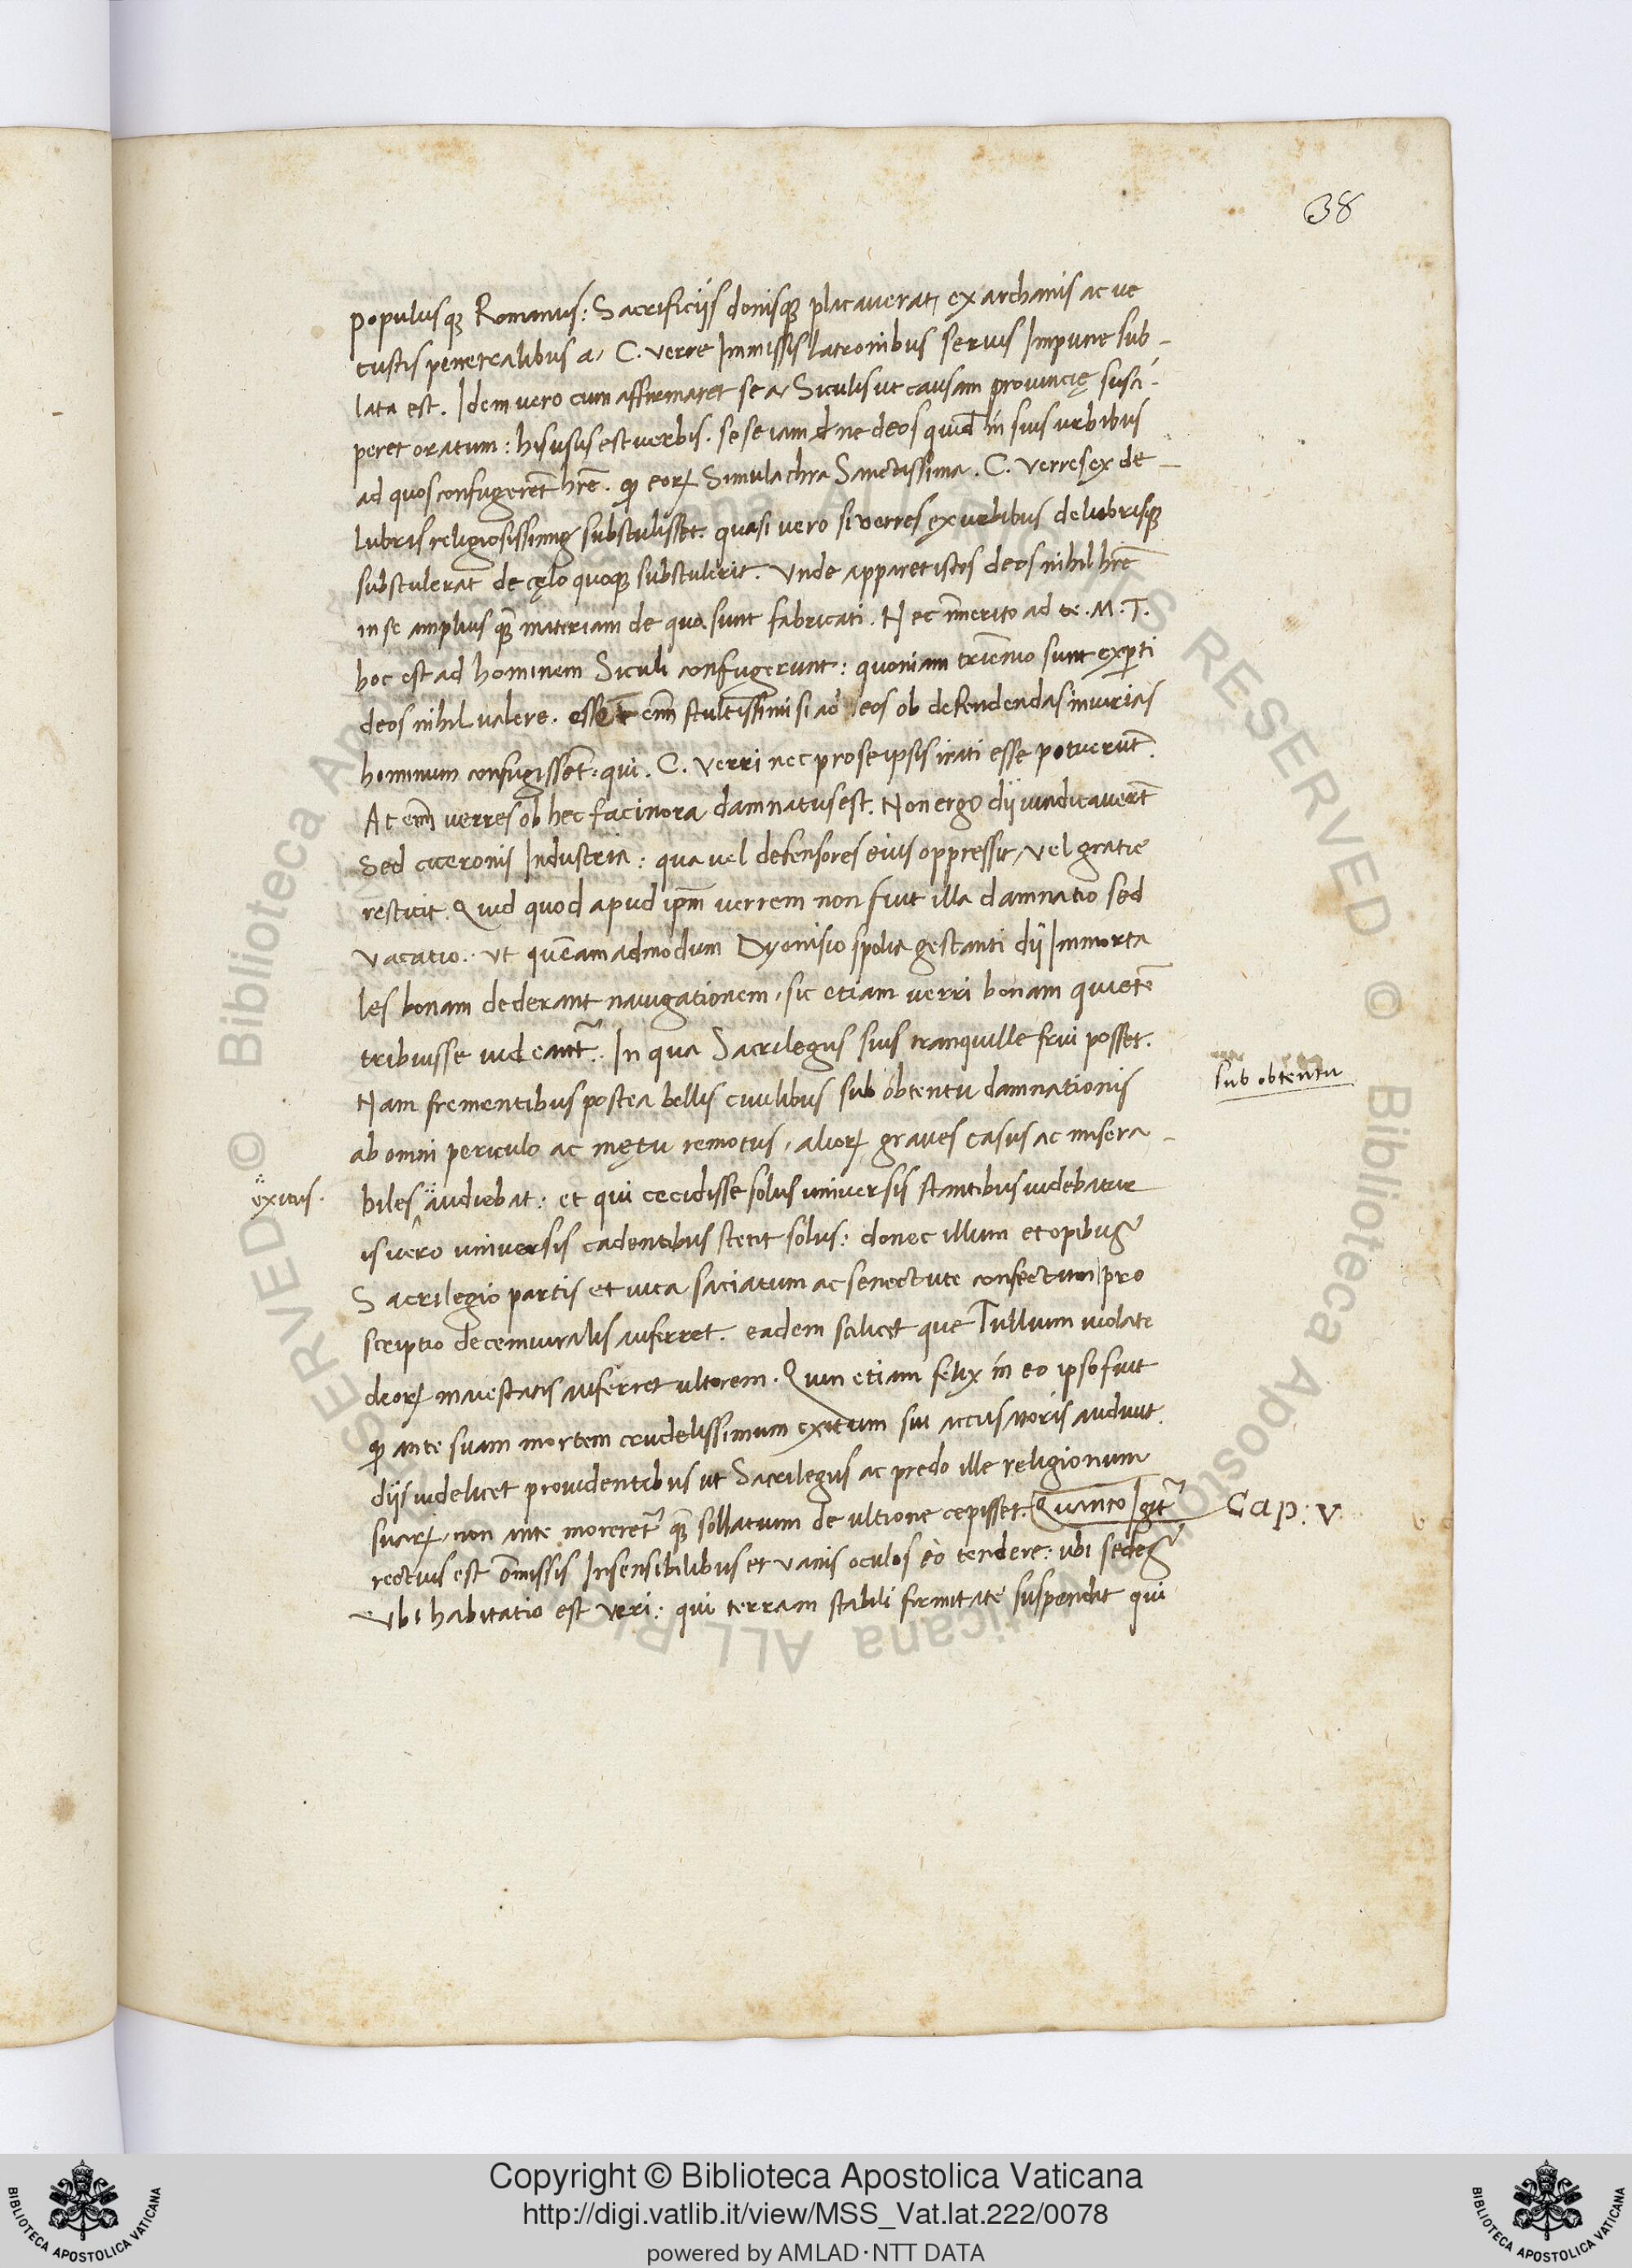 38
populusq; Romanus: Sacrificijs donisq; placauerat, ex archanis ac ve
tustis penetralibus a, C. verre Immissis latronibus seruis Impune sub-
lata est. Idem vero cum affirmaret se a, Siculis ut causam prouincię susci-
peret oratum: his usus est verbis. se se iam ne deos quid in suis urbibus
ad quos confugerēt hr̄e. eorꝝ Simulachra Sanctissima. C. verres ex de-
lubris religiosissimis substulisset. quasi vero si verres ex urbibus delubrisq;
substulerat de cęlo quoq; substulerit. Vnde apparet istos deos nihil hr̄e
in se amplius qȝ̄ materiam de qua sunt fabricati. Nec īmerito ad te. M. T.
hoc est ad hominem Siculi confugerunt: quoniam triēnio sunt exꝑti
deos nihil valere. essēt em̄ stultissimi si ad deos ob defendendas iniurias
hominum confugissēt: qui. C. Verri nec pro se ipsis irati esse potuerūt.
At em̄ verres ob hec facinora damnatus est. Non ergo dij uindicauerūt
Sed ciceronis Industria: qua vel defensores eius oppressit, vel gratie
restitit. Quid quod apud ip̄m verrem non fuit illa damnatio sed
vacatio. ut quēamadmodum Dyonisio spolia gestanti dij Immorta
les bonam dederant nauigationem, sic etiam verri bonam quietē
tribuisse uideantr̃. In qua Sacrilegus suis tranquille frui posset.
Nam frementibus postea bellis ciuilibus sub obtentu damnationis
sub obtentu
ab omni periculo ac mętu remotus, aliorꝝ graues casus ac misera-
exitus.
biles audiebat: et qui cecidisse solus universis stantibus uidebatur
is vero universis cadentibus stetit solus: donec illum et opibus
Sacrilegio partis et vita saciatum ac senectute confectum pro
scriptio decemuiralis auferret. eadem scilicet que Tullium violate
deorꝝ maiestatis auferret ultorem. Quin etiam felix in eo ipso fuit
ꝙ ante suam mortem crudelissimum exitum sui accusatoris audiuit
dijs uidelicet prouidentibus ut Sacrilegus ac predo ille religionum
suarꝝ, non ante moreretr̃ qȝ̄ sollatium de ultione cepisset. Quanto Igitr̃
Cap: V.
rectius est ōmissis Insensibilibus et vanis oculos eò tendere: ubi sedes
Ubi habitatio est veri: qui terram stabili firmitate suspendit qui
Copyright © Biblioteca Apostolica Vaticana
http://digi.vatlib.it/view/MSS_Vat.lat.222/0078
powered by AMLAD·NTT DATA